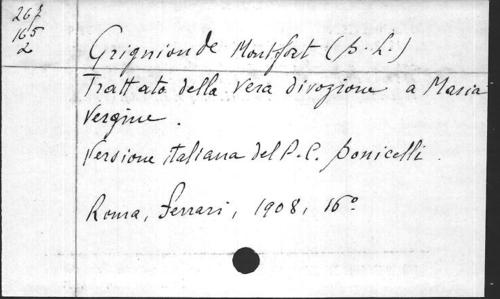 267
165
2
Grignion de Montfort (B. L.)
Trattato della vera divozione a Maria
Vergine.
Versione italiana del P. C. Bonicelli.
Roma, Ferrari, 1908, 16°